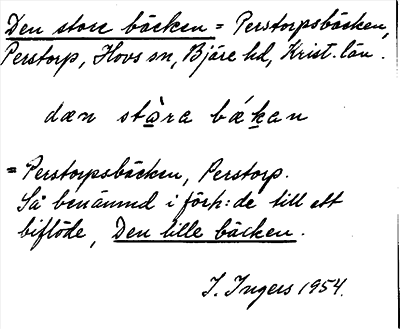 Den store bäcken = Perstorpsbäcken,
Perstorp, Hovs sn, Bjäre hd, Krist. län.
dæn stɑ̀ra bǽkan
= Perstorpsbäcken, Perstorp.
Så benämnd i förh:de till ett
biflöde, Den lille bäcken.
I. Ingers 1954.